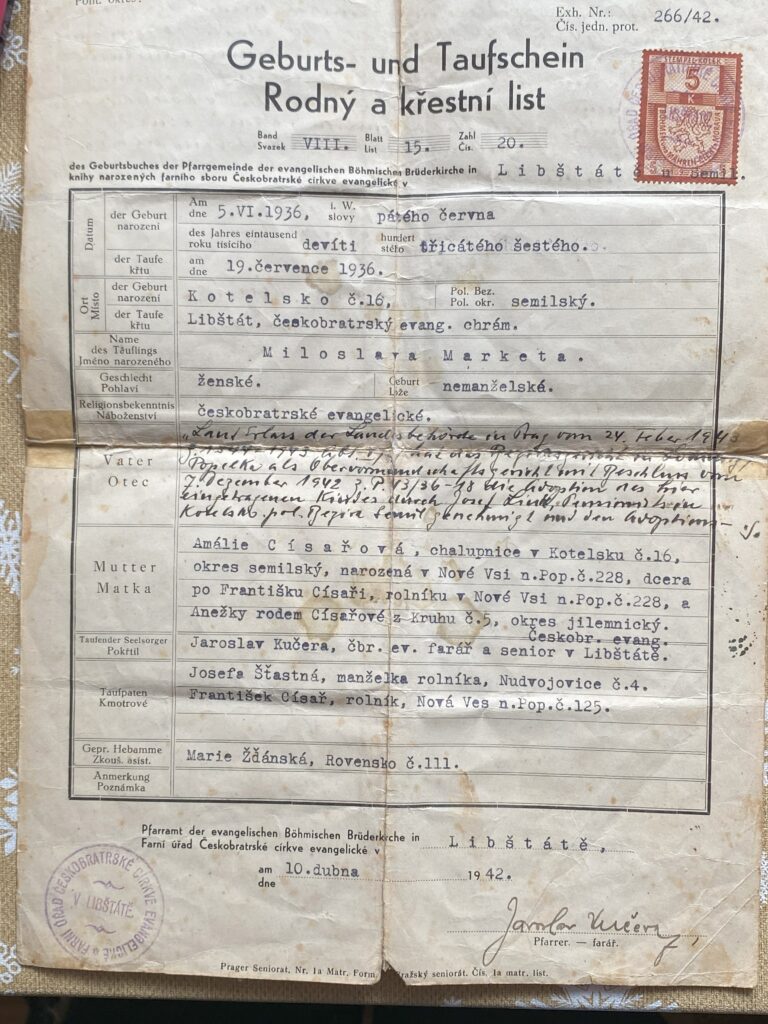 Exh. Nr.:
Čís. jedn. prot. 266/42.
Geburts- und Taufschein
Rodný a křestní list
STEMPEL-KOLEK
5
K
Band Svazek VIII. Blatt List 15. Zahl Čís. 20.
des Geburtsbuches der Pfarrgemeinde der evangelischen Böhmischen Brüderkirche in
knihy narozených farního sboru Českobratrské církve evangelické v Libštátě u Semil.
Datum
der Geburt narození
Am dne 5.VI.1936, i. W. slovy pátého června
des Jahres eintausend roku tisícího devíti hundert stého třicátého šestého.
der Taufe křtu
am dne 19.července 1936.
Ort Místo
der Geburt narození
Kotelsko č.16, Pol. Bez. Pol. okr. semilský.
der Taufe křtu
Libštát, českobratrský evang. chrám.
Name des Täuflings
Jméno narozeného
Miloslava Marketa.
Geschlecht Pohlaví
ženské. Geburt Lože nemanželské.
Religionsbekenntnis Náboženství
českobratrské evangelické.
Vater
Otec
"Laut Erlass der Landesbehörde in Prag vom 24. Feber 1943
Popelka als Obervormundschaftsgericht mit Beschluss vom
7. Dezember 1942 die Adoption des hier
eingetragenen Kindes durch Josef
Kotelsko, pol. Bezirk Semil genehmigt und den Adoptions-
Mutter
Matka
Amálie Císařová, chalupnice v Kotelsku č.16,
okres semilský, narozená v Nové Vsi n.Pop.č.228, dcera
po Františku Císaři, rolníku v Nové Vsi n.Pop.č.228, a
Anežky rodem Císařové z Kruhu č.5, okres jilemnický.
Českobr. evang.
Taufender Seelsorger
Pokřtil
Jaroslav Kučera, čbr. ev. farář a senior v Libštátě.
Taufpaten
Kmotrové
Josefa Šťastná, manželka rolníka, Nudvojovice č.4.
František Císař, rolník, Nová Ves n.Pop.č.125.
Gepr. Hebamme
Zkouš. asist.
Marie Žďánská, Rovensko č.111.
Anmerkung
Poznámka
Pfarramt der evangelischen Böhmischen Brüderkirche in
Farní úřad Českobratrské církve evangelické v Libštátě,
am dne 10.dubna 1942.
FARNÍ ÚŘAD ČESKOBRATRSKÉ CÍRKVE EVANGELICKÉ
V LIBŠTÁTĚ
Jaroslav Kučera,
Pfarrer. — farář.
Prager Seniorat, Nr. 1a Matr. Form. Pražský seniorát. Čís. 1a matr. list.